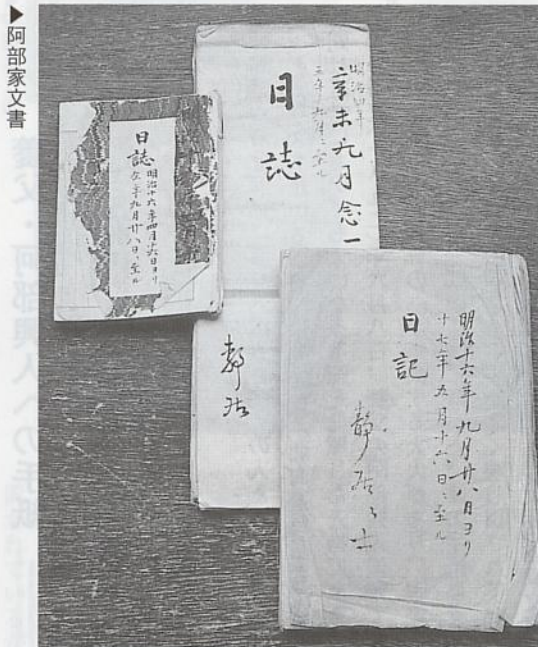 ▶阿部家文書
日誌
明治十六年四月十六日ヨリ
仝年九月廿八日ニ至ル
明治四年
辛未九月念一
日誌
静居
明治十六年九月廿八日ヨリ
十七年五月十六日ニ至ル
日記
静居